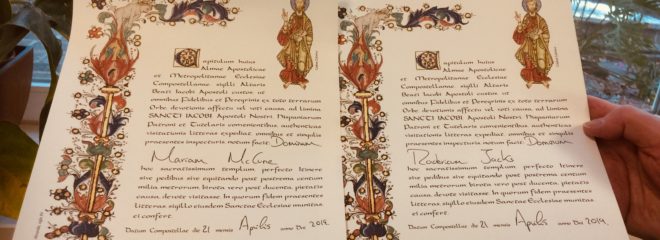 Capitulum huius
Almae Apostolicae
et Metropolitanae Ecclesiae
Compostellanae sigilli Altaris
Beati Iacobi Apostoli custos ut
omnibus Fidelibus et Peregrinis ex toto terrarum
Orbe, devotionis affectu vel voti causa, ad limina
SANCTI IACOBI Apostoli Nostri Hispaniarum
Patroni et Tutelaris convenientibus, authenticas
visitationis litteras expediat, omnibus et singulis
praesentes inspecturis notum facit: Dominam
Mariam
hoc sacratissimum templum, perfecto itinere
sive pedibus sive equitando post postrema centum
milia metrorum, birota vero post ducenta, pietatis
causa, devote visitasse. In quorum fidem praesentes
litteras, sigillo eiusdem Sanctae Ecclesiae munitas
ei confert.
Datum Compostellae die 21 mensis Aprilis anno Dni 2019
Capitulum huius
Almae Apostolicae
et Metropolitanae Ecclesiae
Compostellanae sigilli Altaris
Beati Iacobi Apostoli custos ut
omnibus Fidelibus et Peregrinis ex toto terrarum
Orbe, devotionis affectu vel voti causa, ad limina
SANCTI IACOBI Apostoli Nostri Hispaniarum
Patroni et Tutelaris convenientibus, authenticas
visitationis litteras expediat, omnibus et singulis
praesentes inspecturis notum facit: Dominum
hoc sacratissimum templum, perfecto itinere
sive pedibus sive equitando post postrema centum
milia metrorum, birota vero post ducenta, pietatis
causa, devote visitasse. In quorum fidem praesentes
litteras, sigillo eiusdem Sanctae Ecclesiae munitas
ei confert.
Datum Compostellae die 21 mensis Aprilis anno Dni 2019